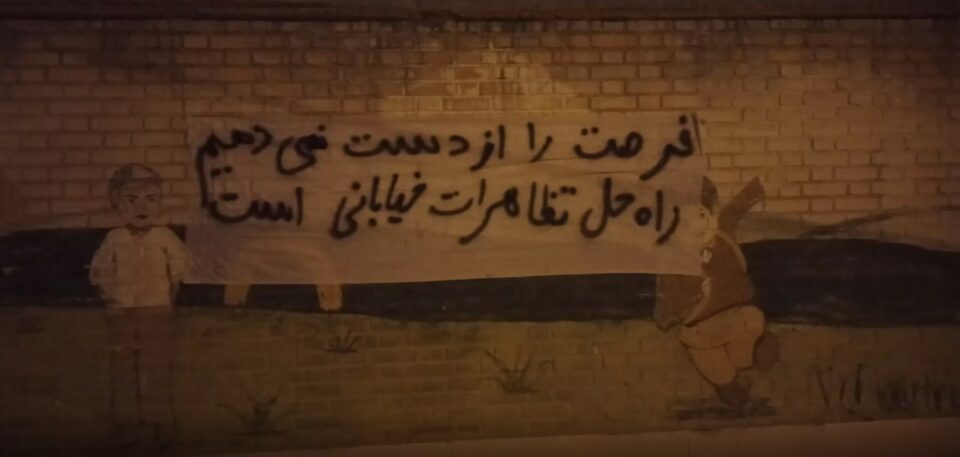 فرصت را از دست نمی دهیم
راه حل تظاهرات خیابانی است